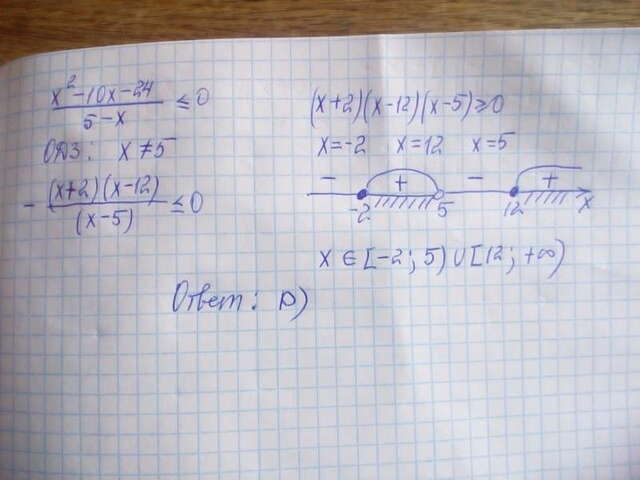 x² - 10x - 24 / 5 - x ≤ 0
ОДЗ: x ≠ 5
- (x+2)(x-12) / (x-5) ≤ 0
(x+2)(x-12)(x-5) ≥ 0
x = -2 x = 12 x = 5
- + - +
-2 5 12 x
x ∈ [-2; 5) ∪ [12; +∞)
Ответ: D)